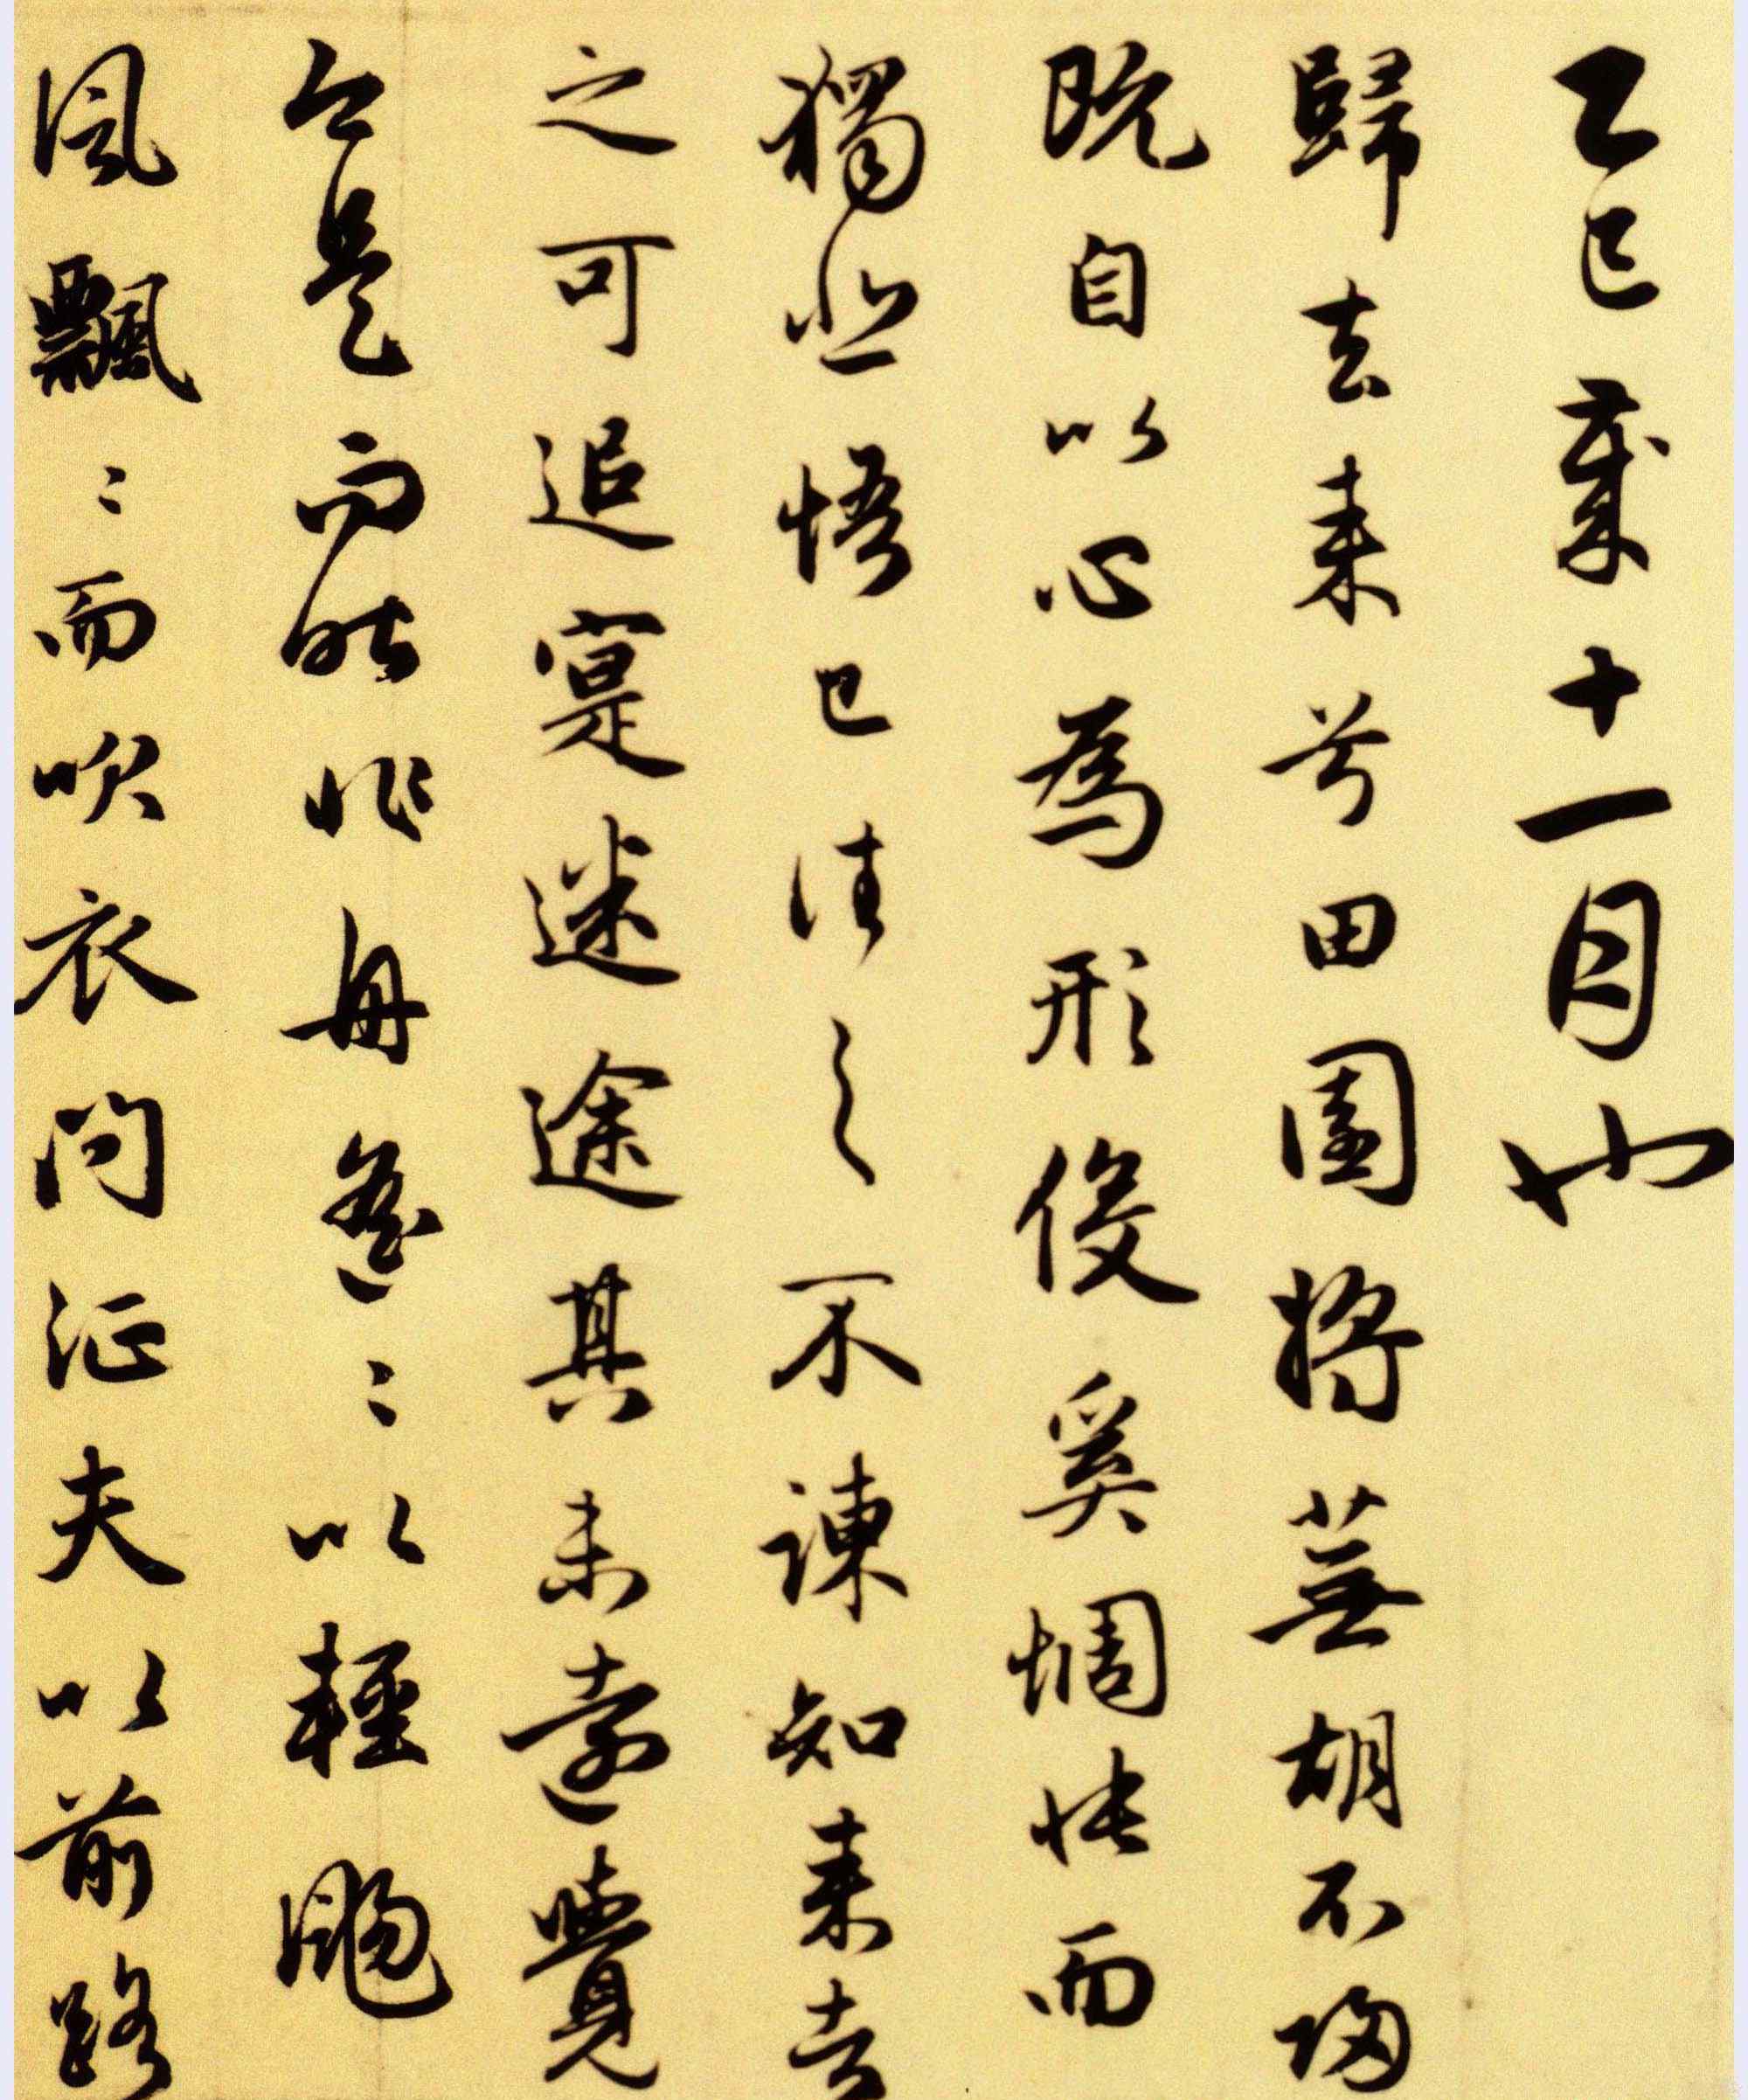 乙巳歲十一月也
歸去来兮田園將蕪胡不歸
既自以心為形役奚惆悵而
獨悲悟已往之不諫知来者
之可追寔迷途其未遠覺
今是而昨非舟遙〻以輕颺
風飄〻而吹衣問征夫以前路